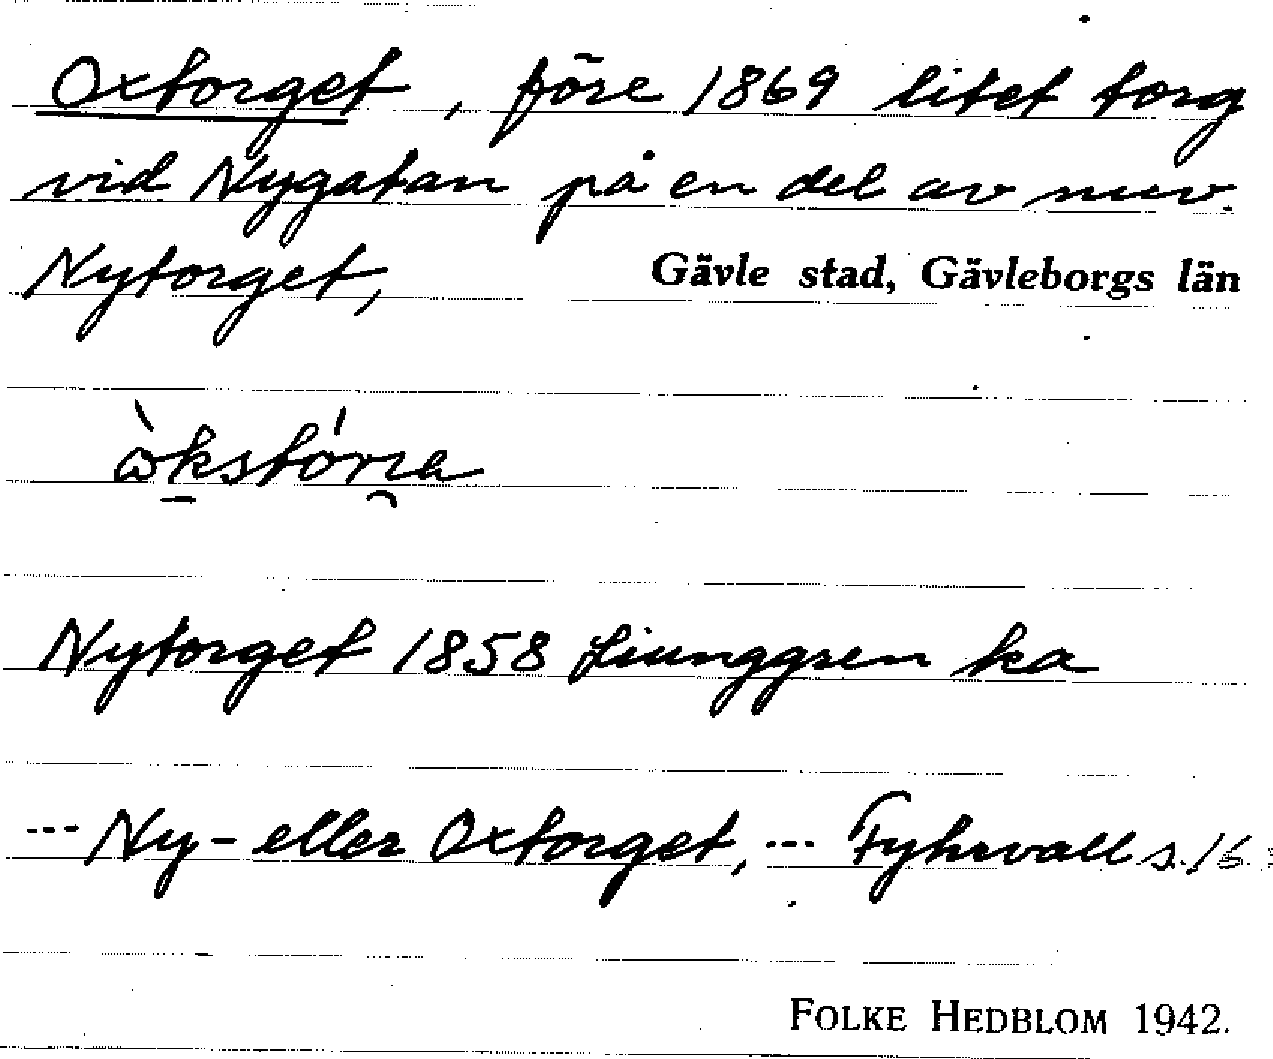 Oxtorget, före 1869 litet torg
vid Nygatan på en del av nuv.
Nytorget, Gävle stad, Gävleborgs län
Nytorget 1858 Ljunggren ka
--- Ny- eller Oxtorget, --- Fyhrvall s.
FOLKE HEDBLOM 1942.